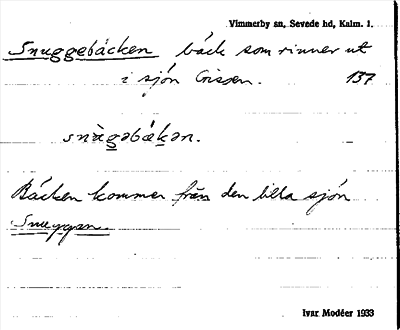 Vimmerby sn, Sevede hd, Kalm. l.
Snuggebäcken bäck som rinner ut
i sjön Crissen. 137
snùgəbækən.
Bäcken kommer från den lilla sjön
Snuggan.
Ivar Modéer 1933